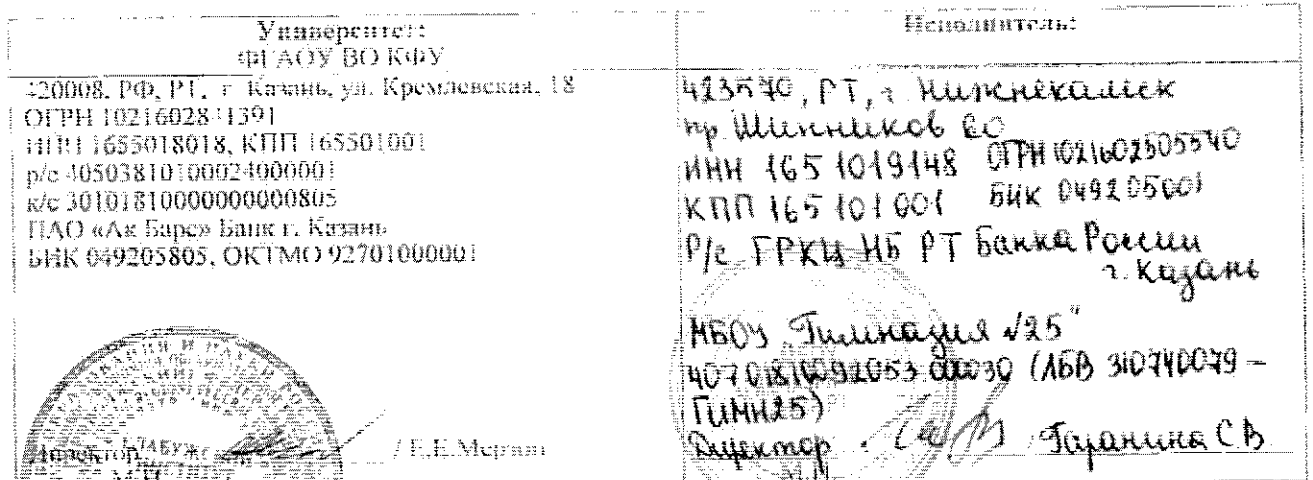 Университет:
ФГАОУ ВО КФУ
420008, РФ, РТ, г. Казань, ул. Кремлевская, 18
ОГРН 1021602841391
ИНН 1655018018, КПП 165501001
р/с 40503810100024000001
к/с 30101810000000000805
ПАО «Ак Барс» Банк г. Казань
БИК 049205805, ОКТМО 92701000001
Директор / Е.Е.Мерзон
М.П.
Исполнитель:
423570, РТ, г. Нижнекамск
пр. Шинников
ИНН 1651019148 ОГРН 1021602505540
КПП 165101001 БИК 049205001
Р/с ГРКЦ НБ РТ Банка России
г. Казань
МБОУ "Гимназия №25"
(ЛБВ 310740079 –
ГИМН25)
Директор Гаранина С.В